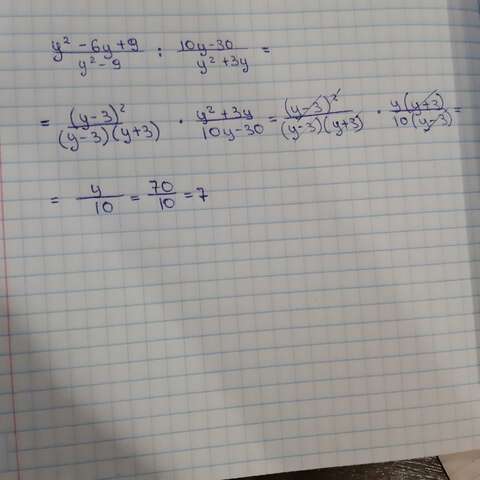 (y² - 6y + 9)/(y² - 9) : (10y - 30)/(y² + 3y) =
= (y - 3)²/((y - 3)(y + 3)) · (y² + 3y)/(10y - 30) = (y - 3)²/((y - 3)(y + 3)) · y(y + 3)/(10(y - 3)) =
= y/10 = 70/10 = 7